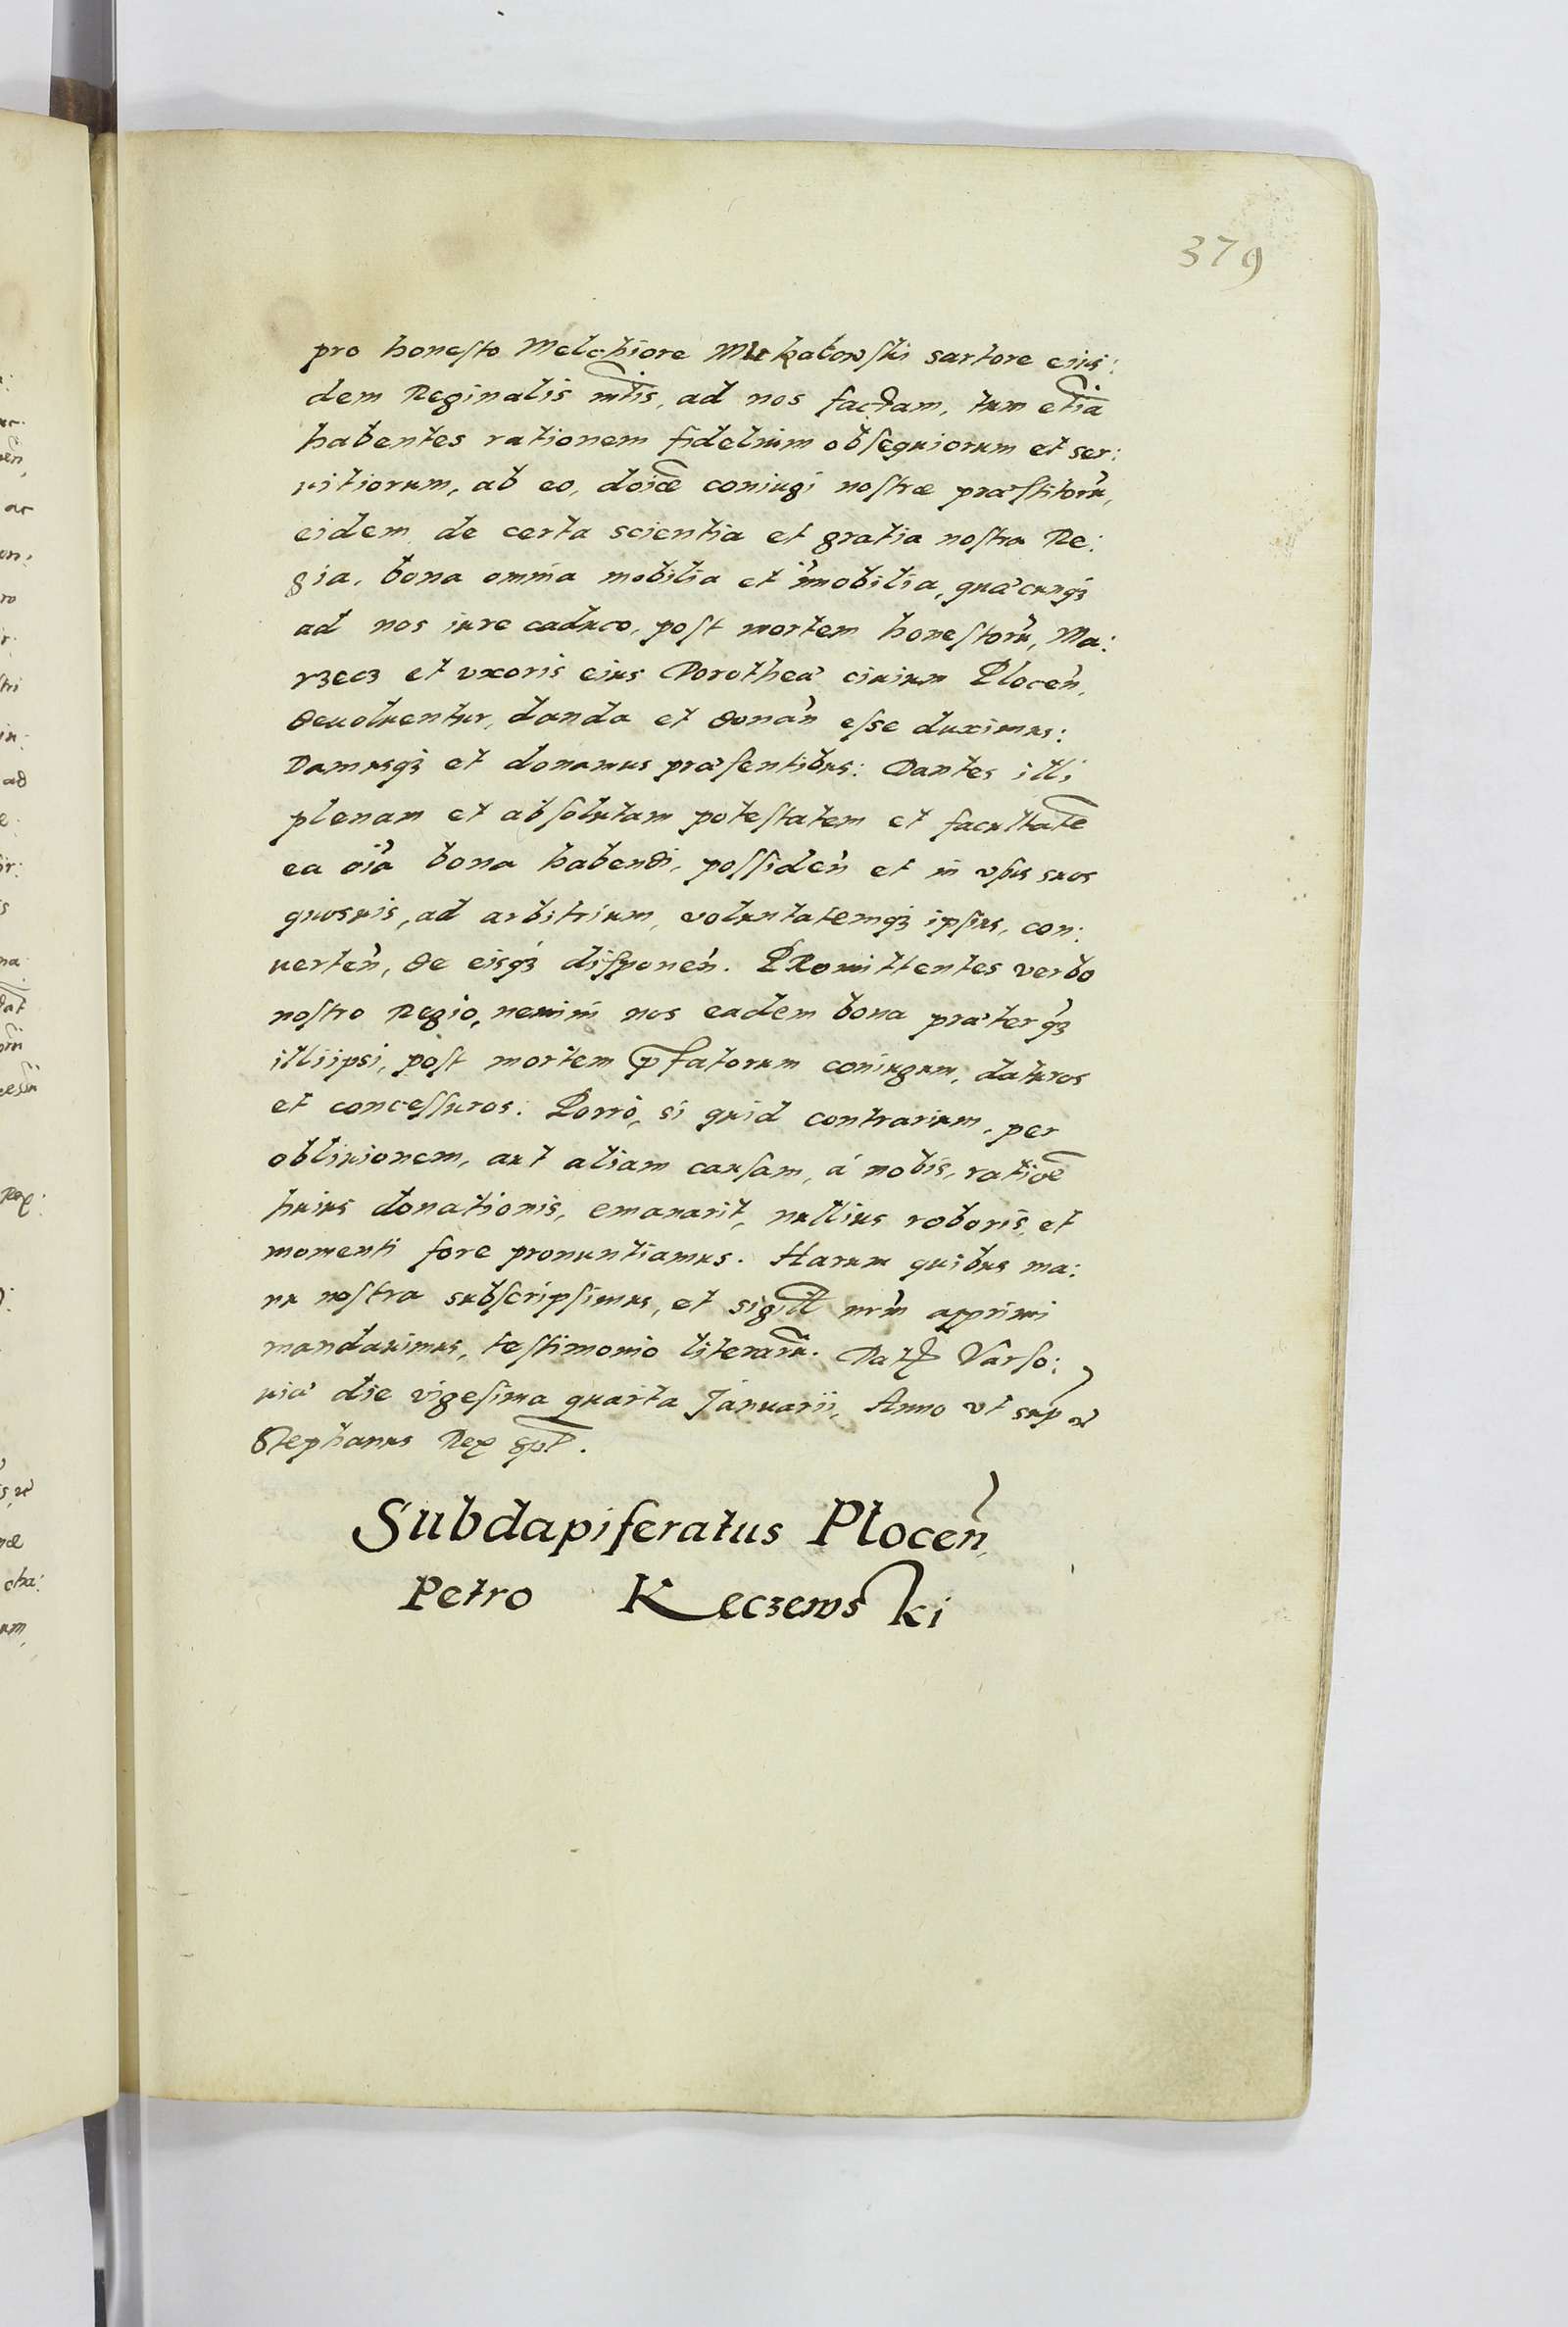 379
pro honesto Melchiore Michalowski sartore eius:
dem Reginalis mtis, ad nos factam, tum etiā
habentes rationem fidelium obsequiorum et ser:
uitiorum, ab eo, doicæ coniugi nostræ præstitorũ,
eidem de certa scientia et gratia nostra Re:
gia, bona omnia mobilia et im̃obilia, quæcunqꝫ
ad nos iure caduco, post mortem honestorũ, Ma:
rzecz et vxoris eius Dorotheæ ciuium Plocen̄,
deuoluentur, danda et donan̄ esse duximus:
Damusqꝫ et donamus præsentibus: Dantes illi
plenam et absolutam potestatem et facultatē
ea oīa bona habendi, possiden̄ et in vsus suos
quosuis, ad arbitrium, voluntatemqꝫ ipsius, con:
uerten̄, de eisqꝫ disponen̄. PRomittentes verbo
nostro Regio, nemini nos eadem bona præterqꝫ
illi ipsi, post mortem p̄fatorum coniugum, daturos
et concessuros. Porrò, si quid contrarium, per
obliuionem, aut aliam causam, à nobis, ratioē
huius donationis, emanarit, nullius roboris, et
momenti fore pronuntiamus. Harum quibus ma:
nu nostra subscripsimus, et sigill nrm̄ apprimi
mandauimus, testimonio literarũ. Datꝭ Varso:
uiæ die vigesima quarta Januarii, Anno vt sup̄
Stephanus Rex spt̄.
Subdapiferatus Plocen̄
Petro Keczewski